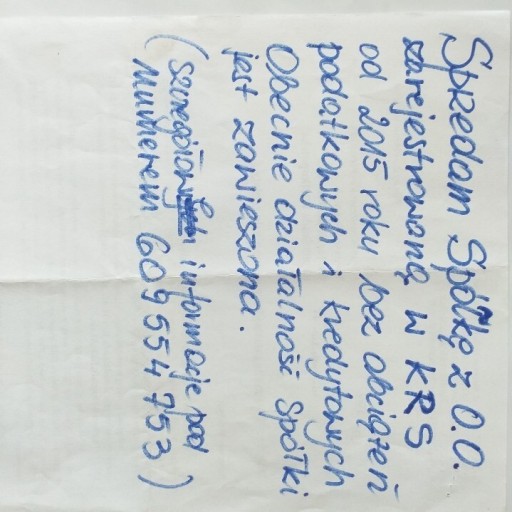 Sprzedam Spółkę z O.O.
zarejestrowaną w KRS
od 2015 roku bez obciążeń
podatkowych i kredytowych
Obecnie działalność spółki
jest zawieszona.
( informacje pod
numerem 609 554 753 )